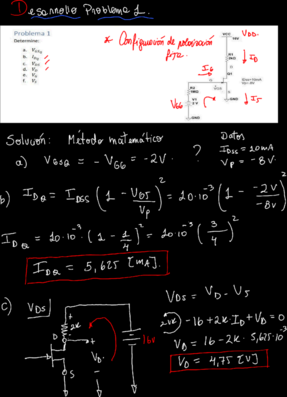 Desarrollo Problema 1.
Problema 1
Determine:
a. V_GSQ
b. I_DQ
c. V_DS
d. V_D
e. V_G
f. V_S
* Configuración de polarización fija.
V_DD.
I_D
I_G
V_GG
I_S
Solución: Método matemático
Datos
I_DSS = 10mA
V_P = -8V.
a) V_GSQ = -V_GG = -2V. ?
b) I_DQ = I_DSS (1 - V_GS/V_P)² = 10·10⁻³ (1 - -2V/-8V)²
I_DQ = 10·10⁻³ · (1 - 1/4)² = 10·10⁻³ (3/4)²
I_DQ = 5,625 [mA].
c) V_DS
V_DS = V_D - V_S
LVK) -16 + 2K·I_D + V_D = 0
V_D = 16 - 2K · 5,625·10⁻³
V_D = 4,75 [V]
+
2K
-
D
+
V_D
-
S
16V